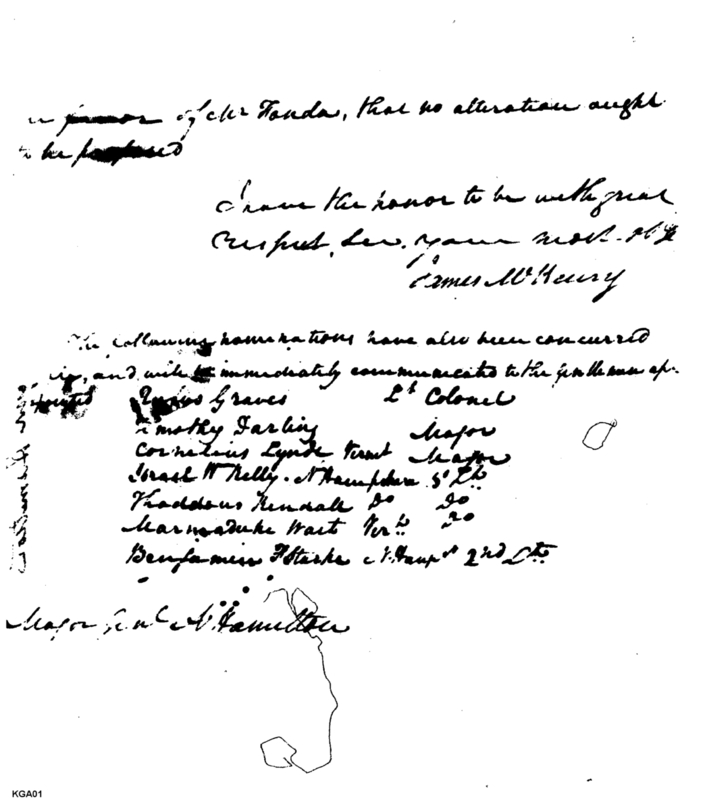 of Mr Fonda, that no alteration ought
to be
I have the honor to be with great
respect, Sir, your most. obt
James McHenry
The following nominations have also been concurred
in, and will be immediately communicated to the gentlemen ap-
pointed Rufus Graves Lt Colonel
Timothy Darling Major
Cornelius Lynde Vermt Major
Israel W Kelly. N Hampshire Lts
Thaddeus Kendall Do Do
Marmaduke Wait Vert Do
Benjamin F Starke N. Hamp 2nd Lts
Major Genl A Hamilton
KGA01